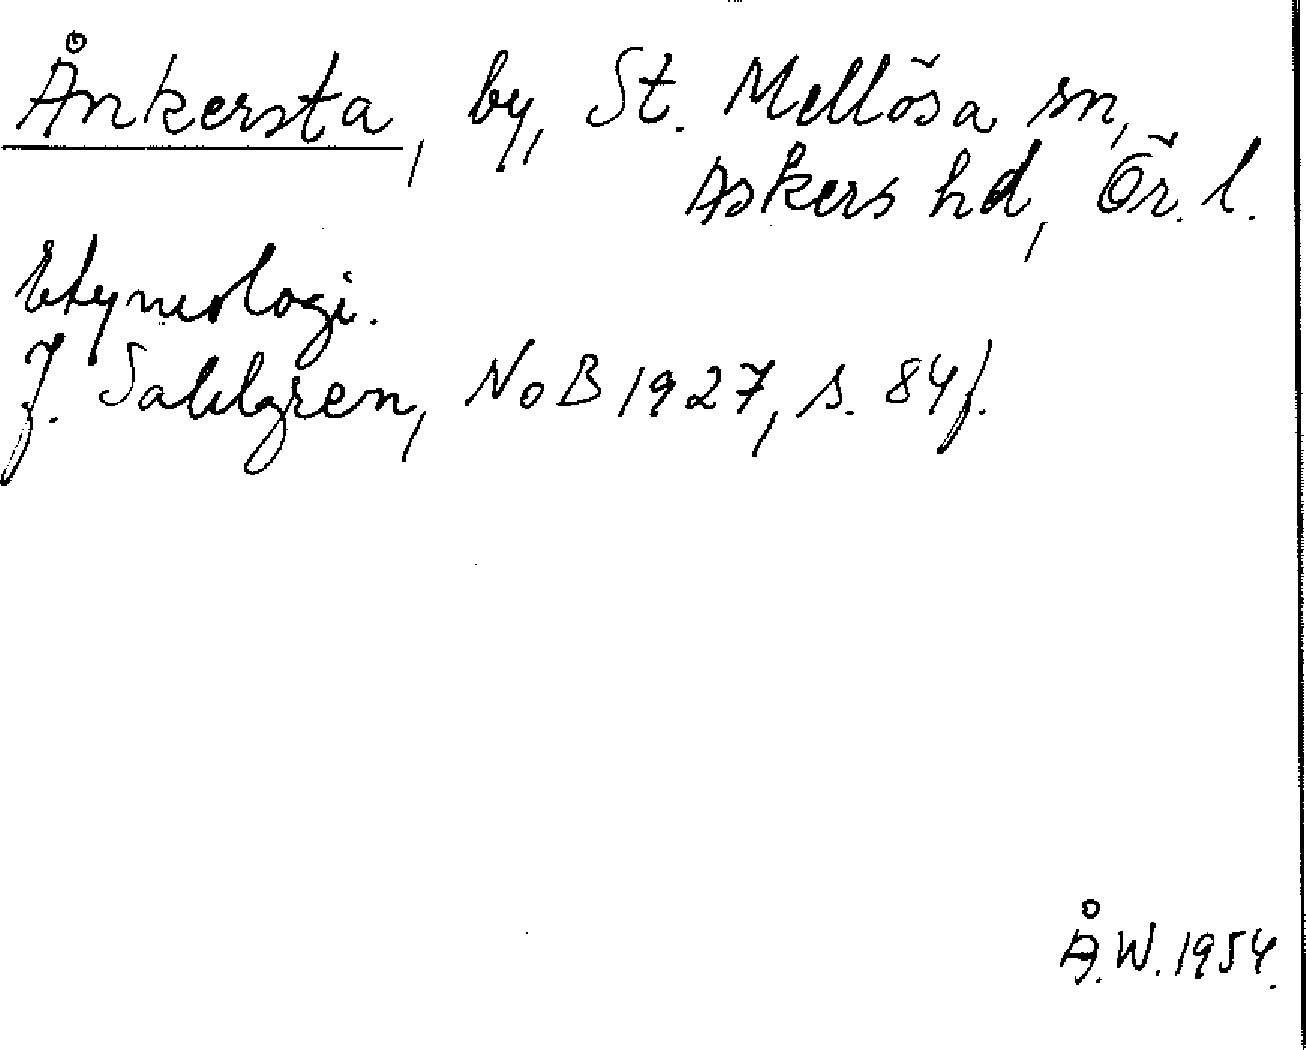 Ånkersta, by, St. Mellösa sn,
Askers hd, Ör. l.
Etymologi.
J. Sahlgren, NoB 1927, s. 84 f.
Å.W. 1954.